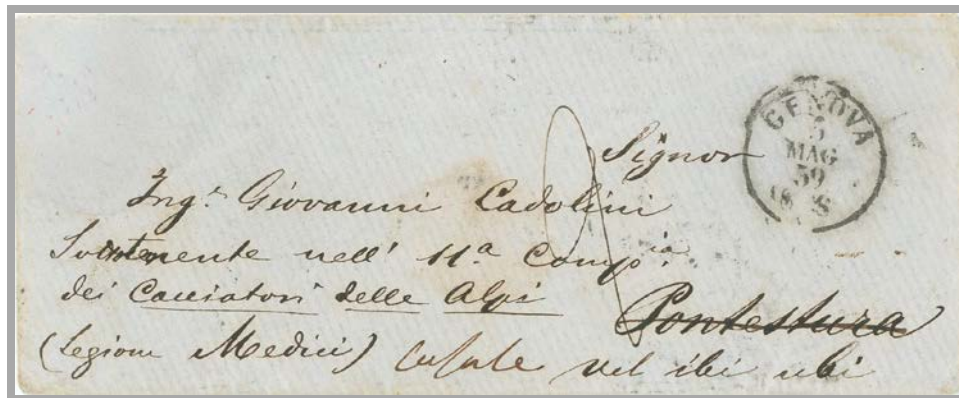 GENOVA
5
MAG
59
Signor
Ing.r Giovanni Cadolini
Sottotenente nell' 11.a Comp.ia
dei Cacciatori delle Alpi
Pontestura
(Legione Medici) Casale vel ibi ubi